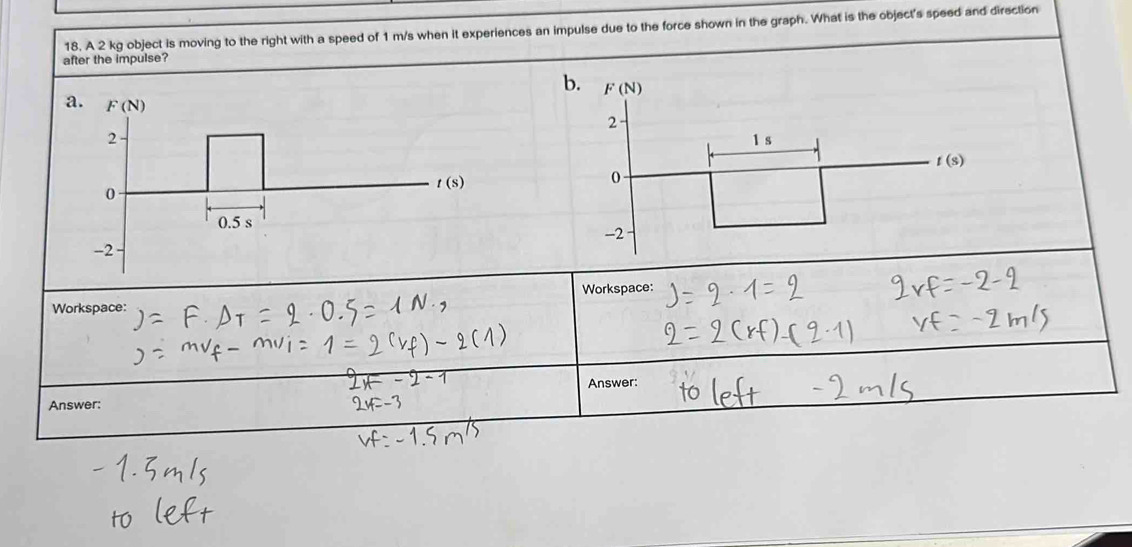 18. A 2 kg object is moving to the right with a speed of 1 m/s when it experiences an impulse due to the force shown in the graph. What is the object's speed and direction
after the impulse?
a. F (N)
2
0
-2
0.5 s
t (s)
b. F (N)
2
0
-2
1 s
t (s)
Workspace:
J = F. ΔT = 2 · 0.5 = 1 N.s
J = mvf - mvi = 1 = 2(vf) - 2(1)
2vf = -2-1
2vf = -3
vf = -1.5 m/s
Answer:
-1.5 m/s
to left
Workspace:
J = 2 · 1 = 2
2 = 2(vf) - (2·1)
2vf = -2-2
vf = -2 m/s
Answer:
to left -2 m/s